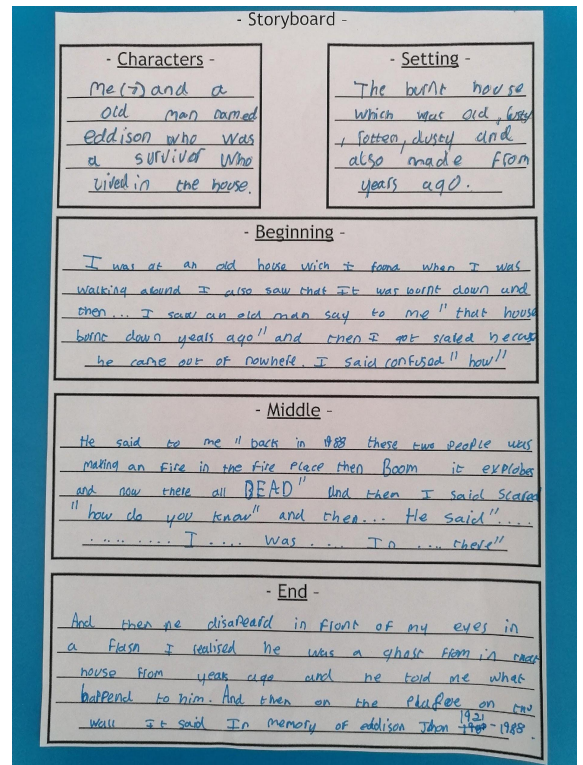 - Storyboard -
- Characters -
Me (7) and a
old man named
eddison who was
a survivor who
lived in the house.
- Setting -
The burnt house
which was old, rusty
, rotten, dusty and
also made from
years ago.
- Beginning -
I was at an old house wich I found when I was
walking around I also saw that It was burnt down and
then... I saw an old man say to me "that house
burnt down years ago" and then I got scared because
he came out of nowhere. I said confused "how"
- Middle -
He said to me "back in 1988 these two people was
making an fire in the fire place then Boom it explobes
and now there all DEAD" And then I said scared
"how do you know" and then... He said "....
......... I .... was .... In .... there"
- End -
And then he disapeard in front of my eyes in
a flash I realised he was a ghost from in that
house from years ago and he told me what
happend to him. And then on the on the
wall It said In memory of eddison Jhon 1921 - 1988.